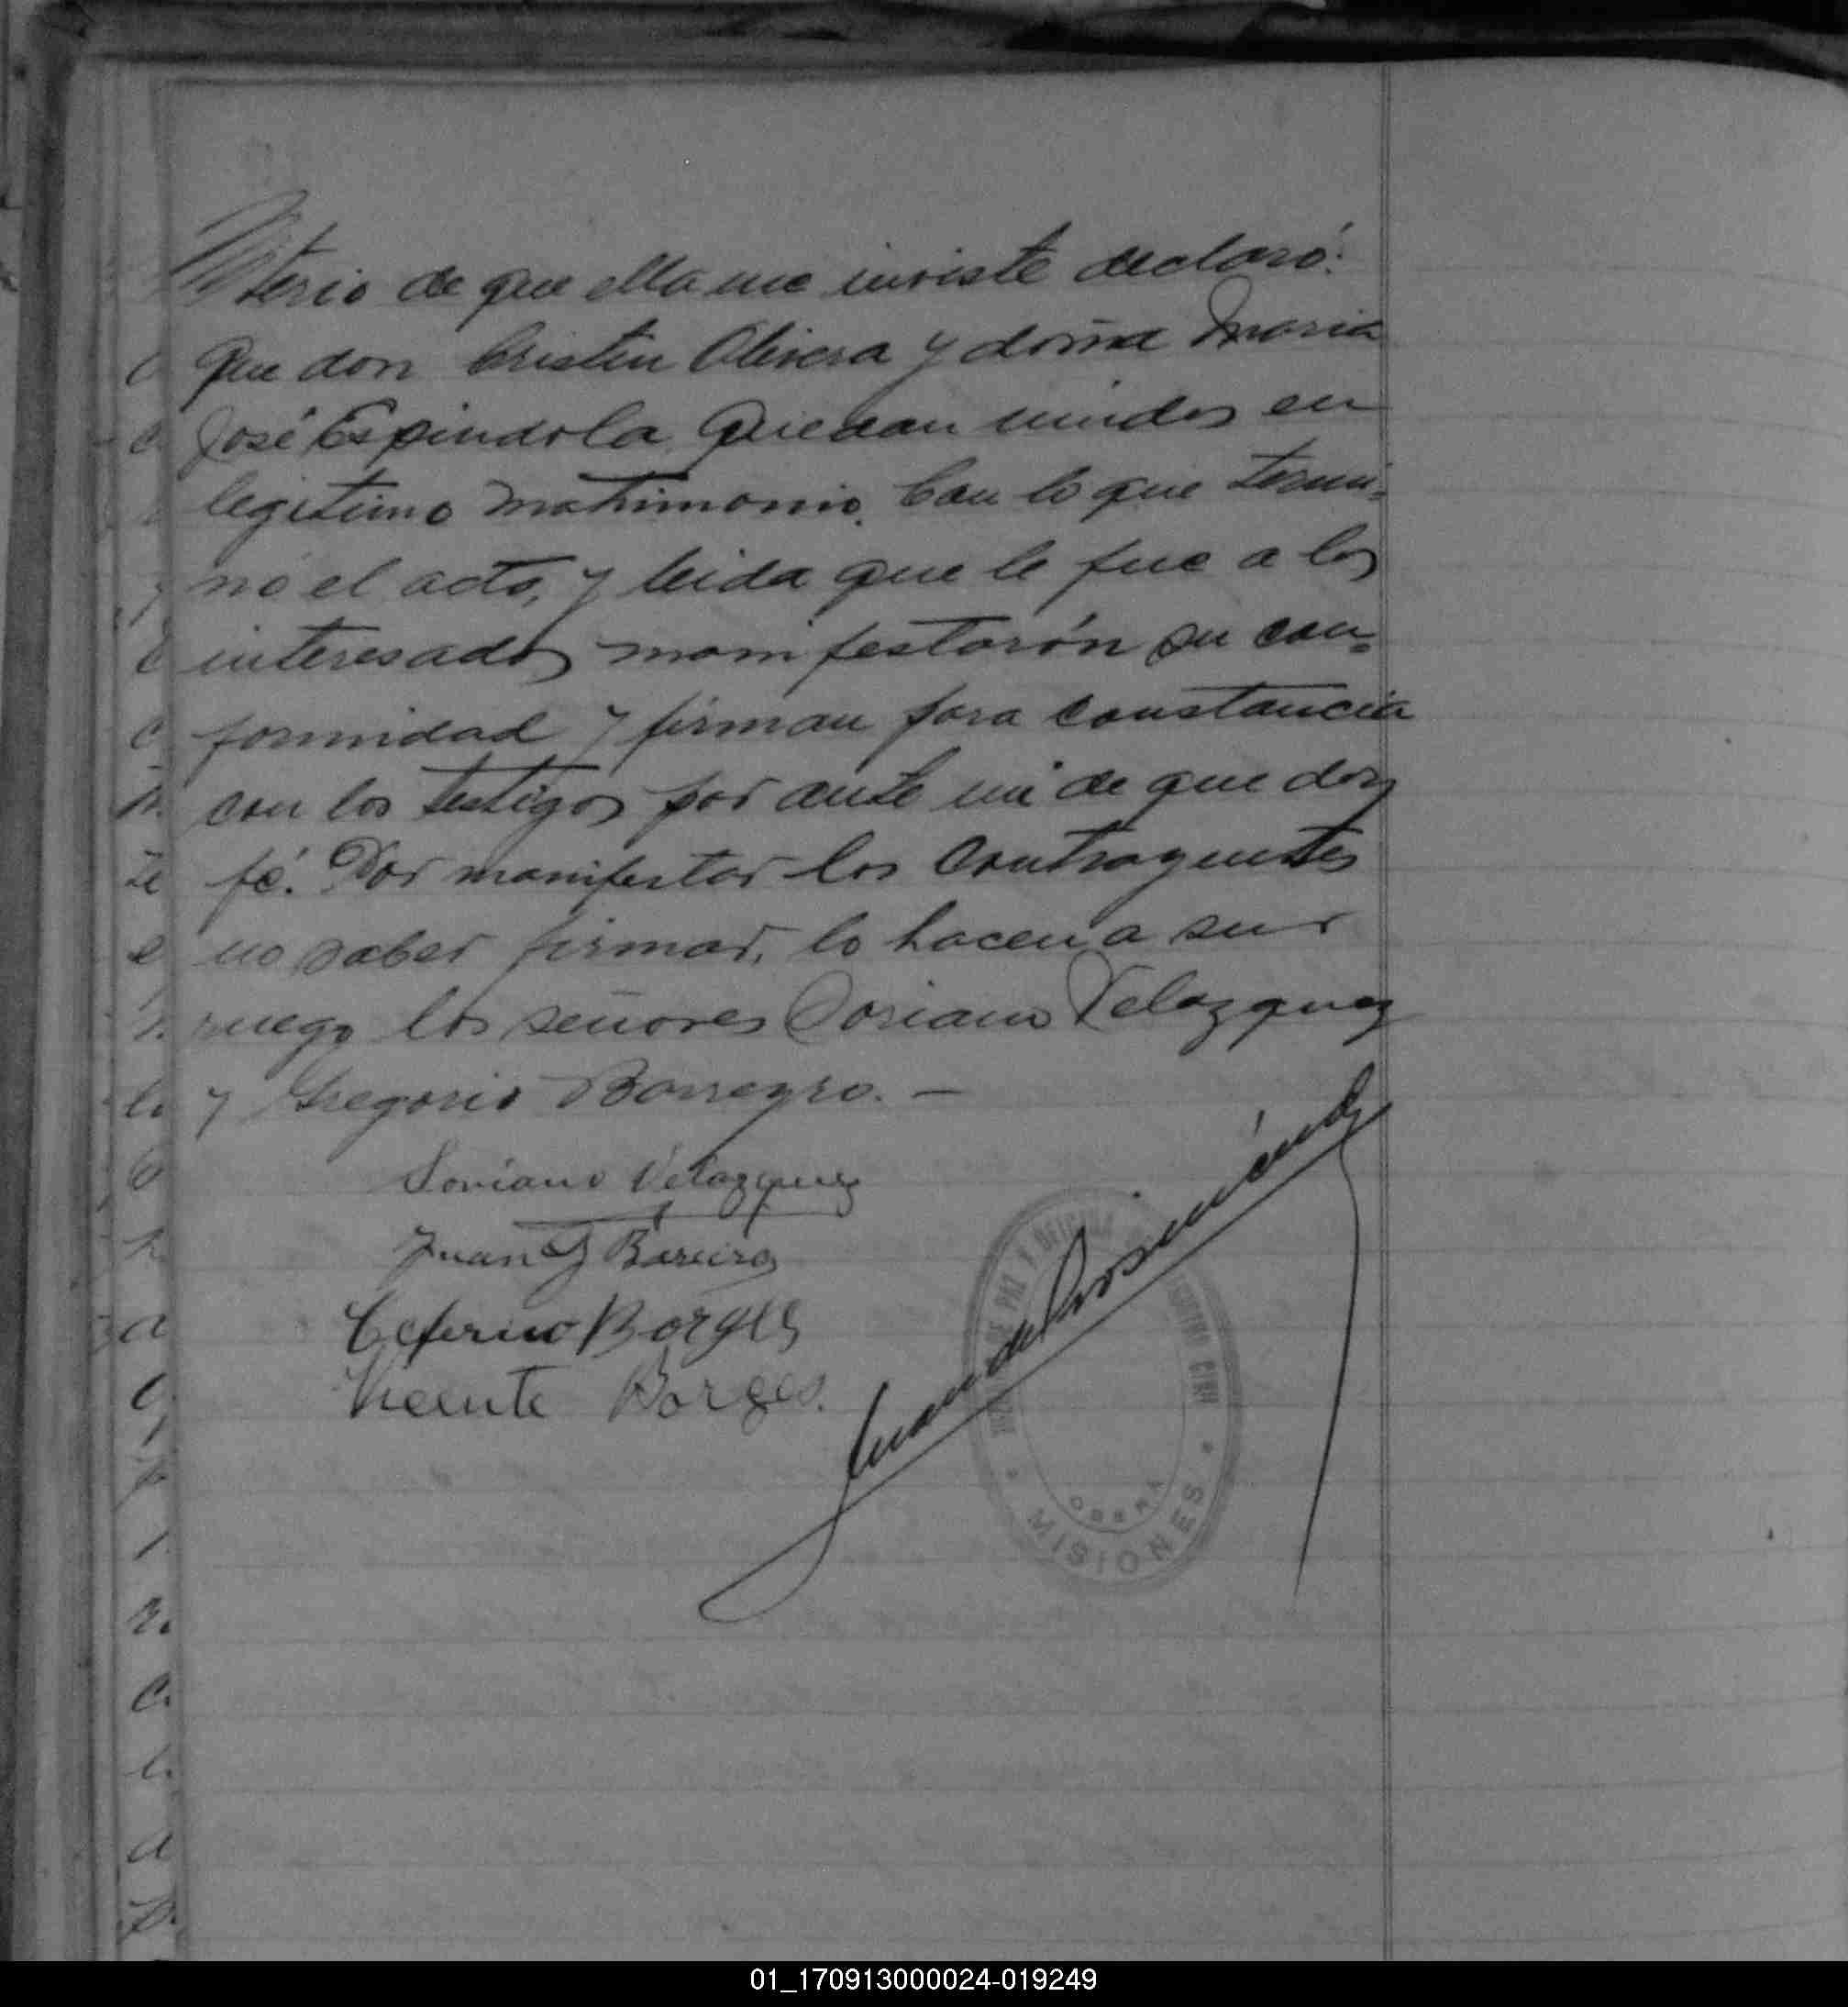 isterio de que ella me inviste declaró:
Que don Cristin Olivera y doña Maria
José Espindola quedan unidos en
legitimo matrimonio. Con lo que termi=
nó el acto, y leida que le fue a los
interesados manifestarón su con=
formidad y firman para constancia
con los testigos por ante mi de que doy
fé. Por manifestar los contrayentes
no saber firmar, lo hacen a sus
ruego los señores Soriano Velazquez
y Gregorio Barreyro. —
Soriano Velazquez
Juan G Bareiro
Ceferino Borges
Vicente Borges.
Juan de
DE PAZ Y OFICINA
REGISTRO CIVIL
OBERA
MISIONES
01_170913000024-019249